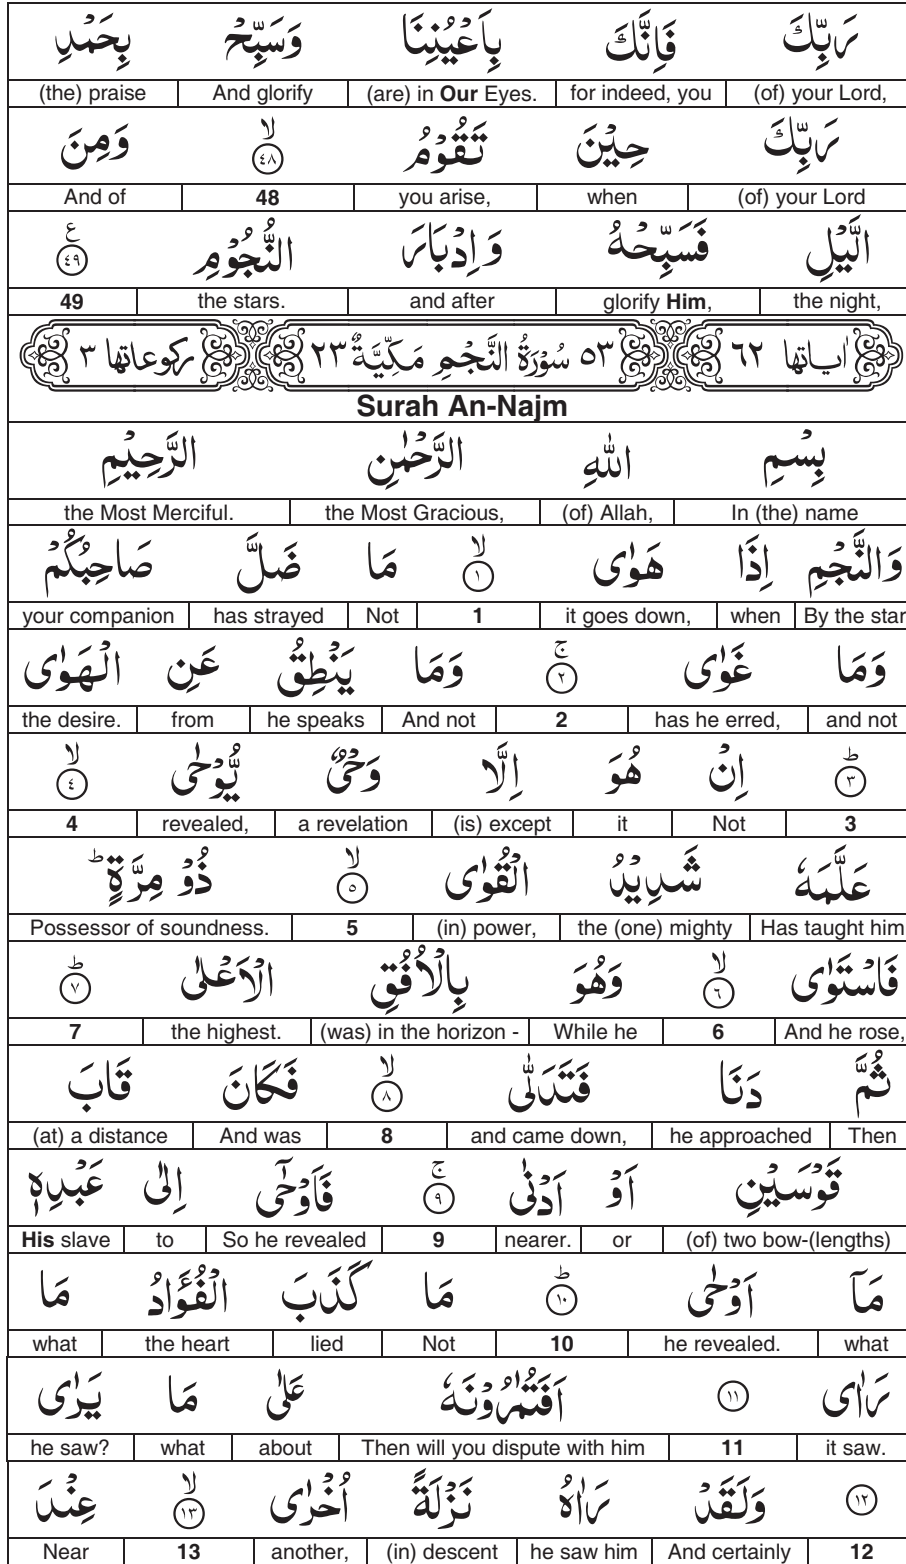 رَبِّكَ فَاِنَّكَ بِاَعْيُنِنَا وَسَبِّحْ بِحَمْدِ
(of) your Lord, for indeed, you (are) in Our Eyes. And glorify (the) praise
رَبِّكَ حِيْنَ تَقُوْمُ ۙ ﴿٤٨﴾ وَمِنَ
(of) your Lord when you arise, 48 And of
الَّيْلِ فَسَبِّحْهُ وَاِدْبَارَ النُّجُوْمِ ﴿٤٩﴾ ع
the night, glorify Him, and after the stars. 49
اٰیاتها ٦٢ ٥٣ سُوْرَةُ النَّجْمِ مَكِّيَّةٌ ٢٣ ركوعاتها ٣
Surah An-Najm
بِسْمِ اللّٰهِ الرَّحْمٰنِ الرَّحِيْمِ
In (the) name (of) Allah, the Most Gracious, the Most Merciful.
وَالنَّجْمِ اِذَا هَوٰى ۙ ﴿١﴾ مَا ضَلَّ صَاحِبُكُمْ
By the star when it goes down, 1 Not has strayed your companion
وَمَا غَوٰى ۚ ﴿٢﴾ وَمَا يَنْطِقُ عَنِ الْهَوٰى
and not has he erred, 2 And not he speaks from the desire.
ؕ ﴿٣﴾ اِنْ هُوَ اِلَّا وَحْىٌ يُّوْحٰى ۙ ﴿٤﴾
3 Not it (is) except a revelation revealed, 4
عَلَّمَهٗ شَدِيْدُ الْقُوٰى ۙ ﴿٥﴾ ذُوْ مِرَّةٍ ؕ
Has taught him the (one) mighty (in) power, 5 Possessor of soundness.
فَاسْتَوٰى ۙ ﴿٦﴾ وَهُوَ بِالْاُفُقِ الْاَعْلٰى ؕ ﴿٧﴾
And he rose, 6 While he (was) in the horizon - the highest. 7
ثُمَّ دَنَا فَتَدَلّٰى ۙ ﴿٨﴾ فَكَانَ قَابَ
Then he approached and came down, 8 And was (at) a distance
قَوْسَيْنِ اَوْ اَدْنٰى ۚ ﴿٩﴾ فَاَوْحٰٓى اِلٰى عَبْدِهٖ
(of) two bow-(lengths) or nearer. 9 So he revealed to His slave
مَآ اَوْحٰى ؕ ﴿١٠﴾ مَا كَذَبَ الْفُؤَادُ مَا
what he revealed. 10 Not lied the heart what
رَاٰى ﴿١١﴾ اَفَتُمٰرُوْنَهٗ عَلٰى مَا يَرٰى
it saw. 11 Then will you dispute with him about what he saw?
﴿١٢﴾ وَلَقَدْ رَاٰهُ نَزْلَةً اُخْرٰى ۙ ﴿١٣﴾ عِنْدَ
12 And certainly he saw him (in) descent another, 13 Near